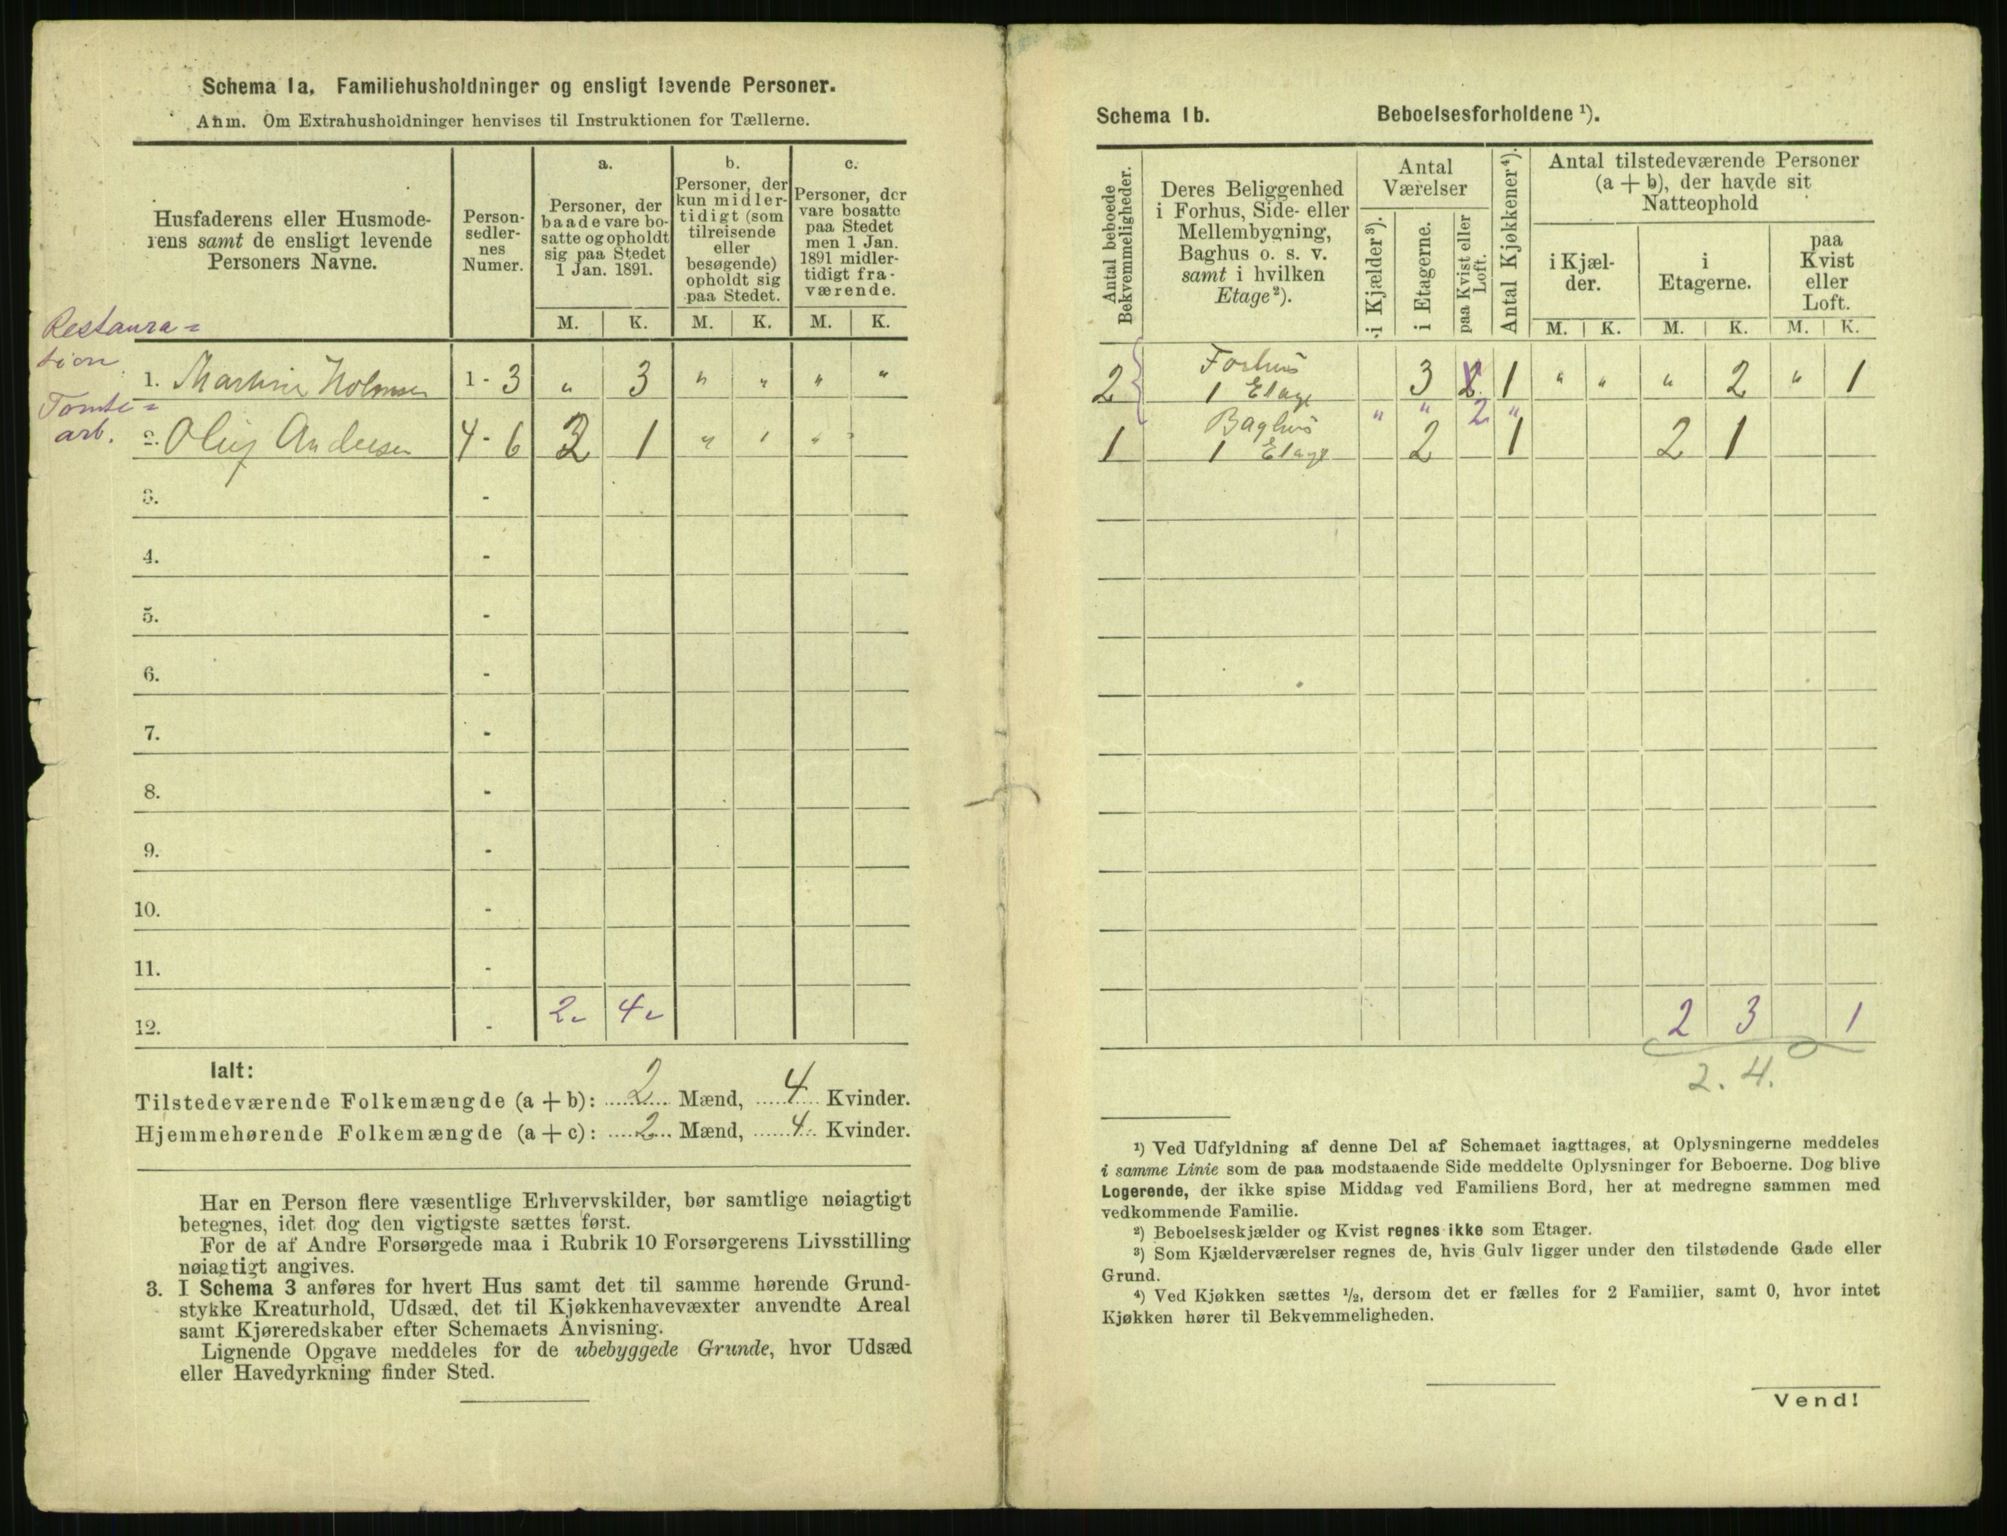 Schema 1a. Familiehusholdninger og ensligt levende Personer.
Anm. Om Extrahusholdninger henvises til Instruktionen for Tællerne.
Husfaderens eller Husmode-
rens samt de ensligt levende
Personers Navne.
Person-
sedler-
nes
Numer.
a.
Personer, der
baade vare bo-
satte og opholdt
sig paa Stedet
1 Jan. 1891.
b.
Personer, der
kun midler-
tidigt (som
tilreisende
eller
besøgende)
opholdt sig
paa Stedet.
c.
Personer, der
vare bosatte
paa Stedet
men 1 Jan.
1891 midler-
tidigt fra-
værende.
M. K. M. K. M. K.
Restaura=
tion
1. Martine Holmsen 1 - 3 „ 3 „ „ „ „
Tomte=
arb.
2. Oluf Andersen 4 - 6 2 1 „ „ „
3. -
4. -
5. -
6. -
7. -
8. -
9. -
10. -
11. -
12. - 2 4
Ialt:
Tilstedeværende Folkemængde (a + b): 2 Mænd, 4 Kvinder.
Hjemmehørende Folkemængde (a + c): 2 Mænd, 4 Kvinder.
Har en Person flere væsentlige Erhvervskilder, bør samtlige nøiagtigt
betegnes, idet dog den vigtigste sættes først.
For de af Andre Forsørgede maa i Rubrik 10 Forsørgerens Livsstilling
nøiagtigt angives.
3. I Schema 3 anføres for hvert Hus samt det til samme hørende Grund-
stykke Kreaturhold, Udsæd, det til Kjøkkenhavevæxter anvendte Areal
samt Kjøreredskaber efter Schemaets Anvisning.
Lignende Opgave meddeles for de ubebyggede Grunde, hvor Udsæd
eller Havedyrkning finder Sted.
Schema 1b. Beboelsesforholdene ¹).
Antal beboede
Bekvemmeligheder.
Deres Beliggenhed
i Forhus, Side- eller
Mellembygning,
Baghus o. s. v.
samt i hvilken
Etage²).
Antal
Værelser
i Kjælder³).
i Etagerne.
paa Kvist eller
Loft.
Antal Kjøkkener⁴).
Antal tilstedeværende Personer
(a + b), der havde sit
Natteophold
i Kjæl-
der.
i
Etagerne.
paa
Kvist
eller
Loft.
M. K. M. K. M. K.
2 Forhus
1 Etage 3 1 „ „ „ 2 „ 1
„ „ 2 „
1 Baghus
1 Etage 2 1 2 1
2 3 1
2. 4.
¹) Ved Udfyldning af denne Del af Schemaet iagttages, at Oplysningerne meddeles
i samme Linie som de paa modstaaende Side meddelte Oplysninger for Beboerne. Dog blive
Logerende, der ikke spise Middag ved Familiens Bord, her at medregne sammen med
vedkommende Familie.
²) Beboelseskjælder og Kvist regnes ikke som Etager.
³) Som Kjælderværelser regnes de, hvis Gulv ligger under den tilstødende Gade eller
Grund.
⁴) Ved Kjøkken sættes ½, dersom det er fælles for 2 Familier, samt 0, hvor intet
Kjøkken hører til Bekvemmeligheden.
Vend!